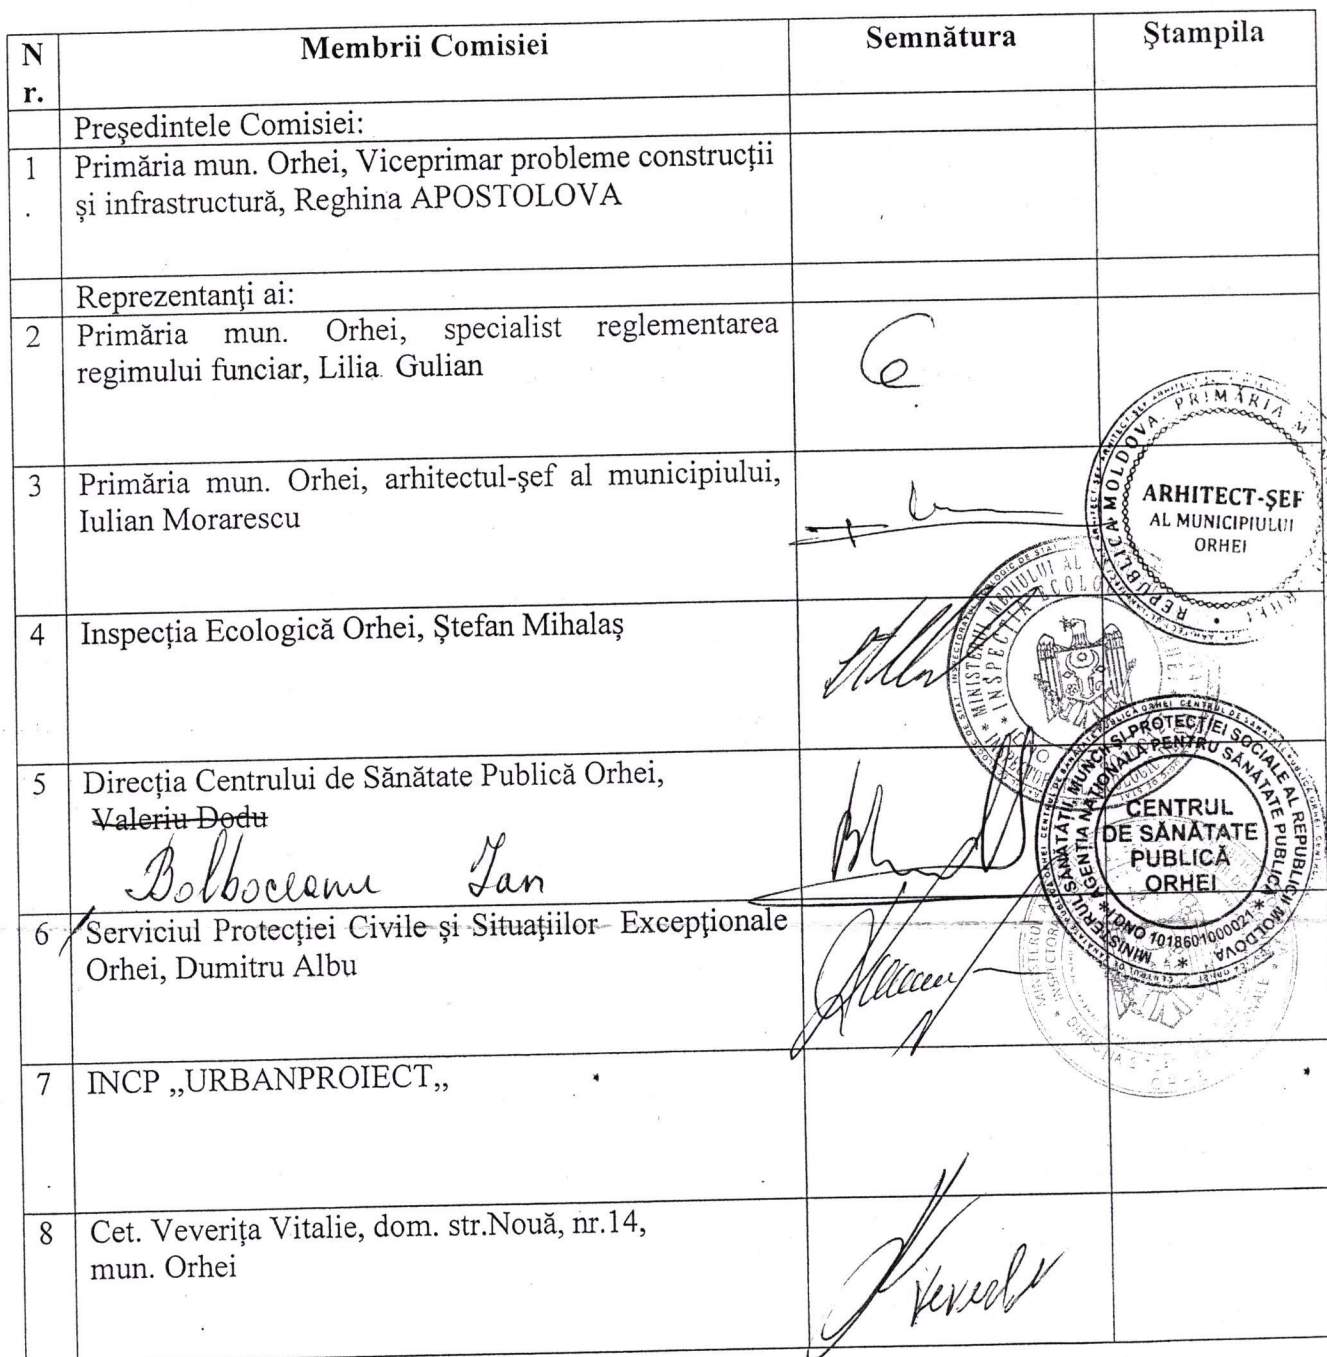 N
r.
Membrii Comisiei
Semnătura
Ştampila
Preşedintele Comisiei:
1
.
Primăria mun. Orhei, Viceprimar probleme construcții
și infrastructură, Reghina APOSTOLOVA
Reprezentanţi ai:
2
Primăria mun. Orhei, specialist reglementarea
regimului funciar, Lilia Gulian
3
Primăria mun. Orhei, arhitectul-şef al municipiului,
Iulian Morarescu
REPUBLICA MOLDOVA. PRIMĂRIA M
ARHITECT-ŞEF
AL MUNICIPIULUI
ORHEI
4
Inspecția Ecologică Orhei, Ștefan Mihalaș
MINISTERUL MEDIULUI AL
INSPECȚIA ECOLO
5
Direcția Centrului de Sănătate Publică Orhei,
Valeriu Dodu
Bolboceanu Ian
MINISTERUL SĂNĂTĂȚII, MUNCII ȘI PROTECȚIEI SOCIALE AL REPUBLICII MOLDOVA
AGENȚIA NAȚIONALĂ PENTRU SĂNĂTATE PUBLICĂ
IDNO 1018601000021
CENTRUL
DE SĂNĂTATE
PUBLICĂ
ORHEI
6
Serviciul Protecţiei Civile şi Situaţiilor Excepţionale
Orhei, Dumitru Albu
7
INCP „URBANPROIECT„
8
Cet. Veverița Vitalie, dom. str.Nouă, nr.14,
mun. Orhei